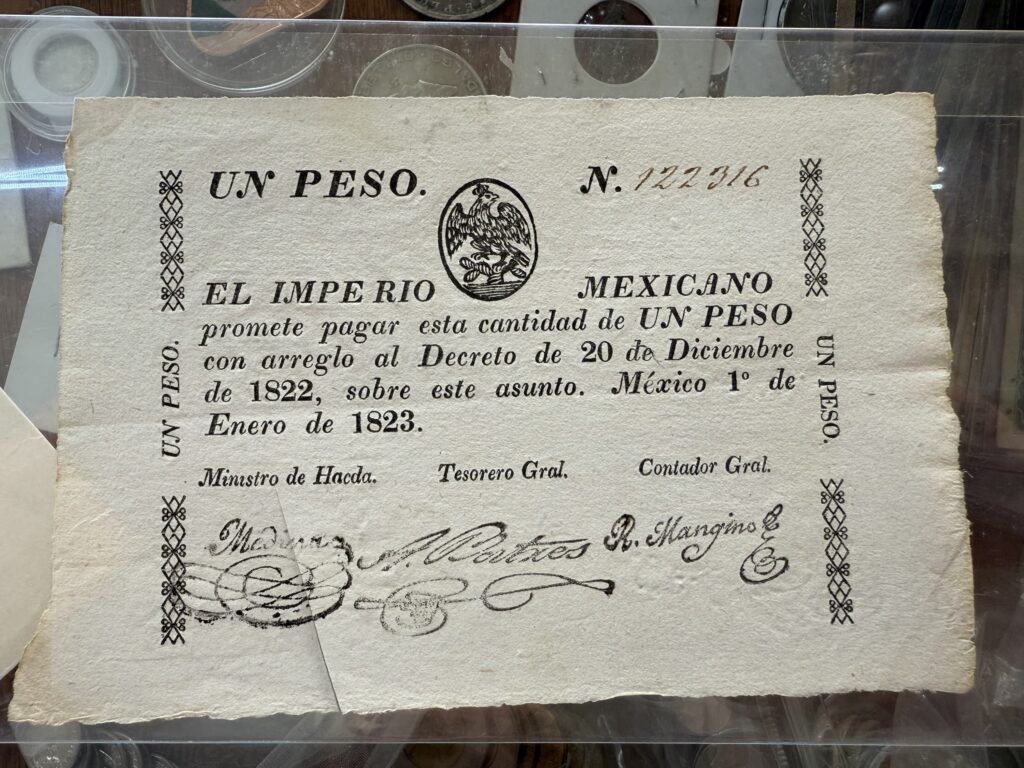 UN PESO. N. 122316
EL IMPERIO MEXICANO
promete pagar esta cantidad de UN PESO
con arreglo al Decreto de 20 de Diciembre
de 1822, sobre este asunto. México 1º de
Enero de 1823.
Ministro de Hacda. Tesorero Gral. Contador Gral.
Medina A. Batres R. Mangino
UN PESO.
UN PESO.